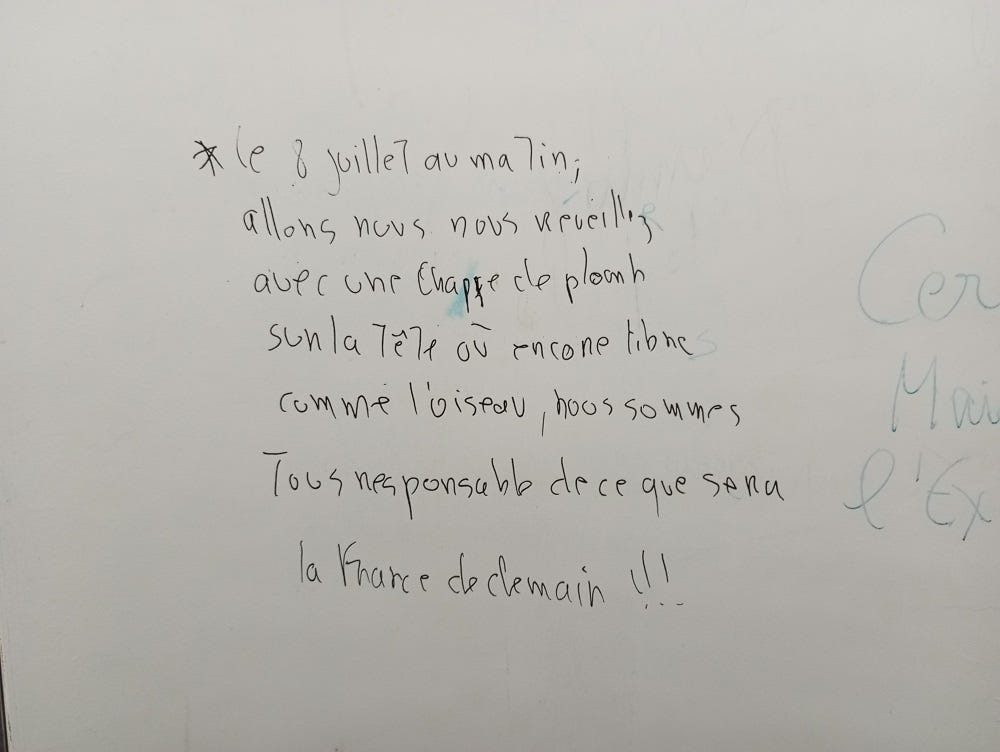 * le 8 juillet au matin,
allons nous nous reveillez
avec une chappe de plomb
sur la tête où encore libres
comme l'oiseau, nous sommes
Tous responsable de ce que sera
la France de demain !!!
Cer
Mai
l'Ex